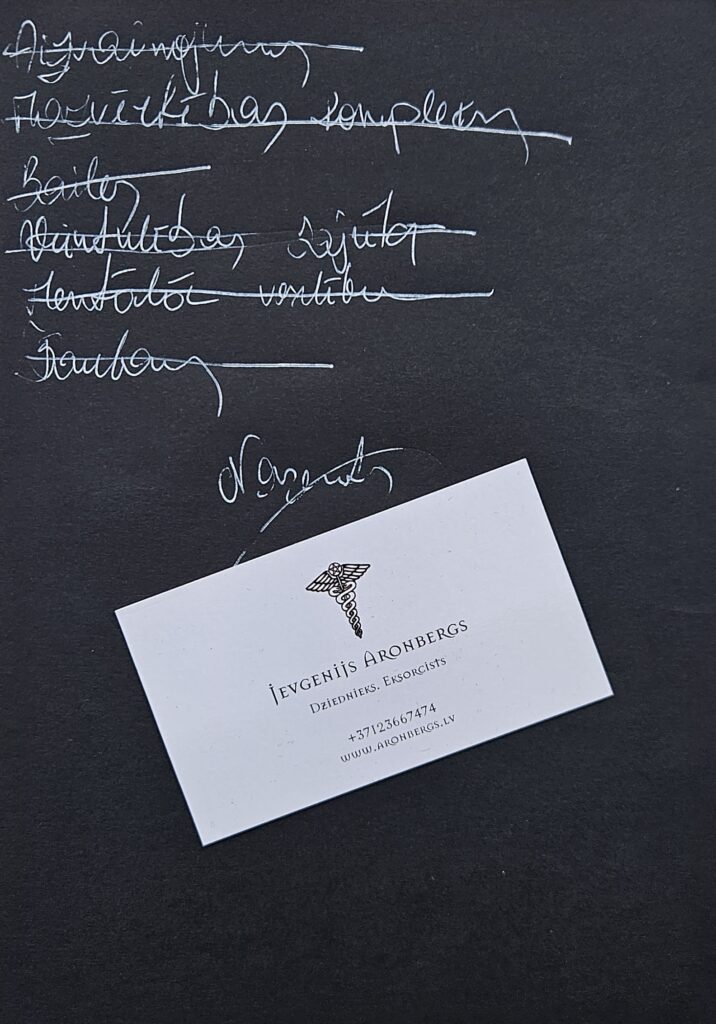 Aizvainojums
Mazvērtības komplekss
Bailes
Vientulības sajūta
Mentālās
Šaubas
Jevgenijs Aronbergs
Dziednieks, Eksorcists
+37123667474
www.aronbergs.lv